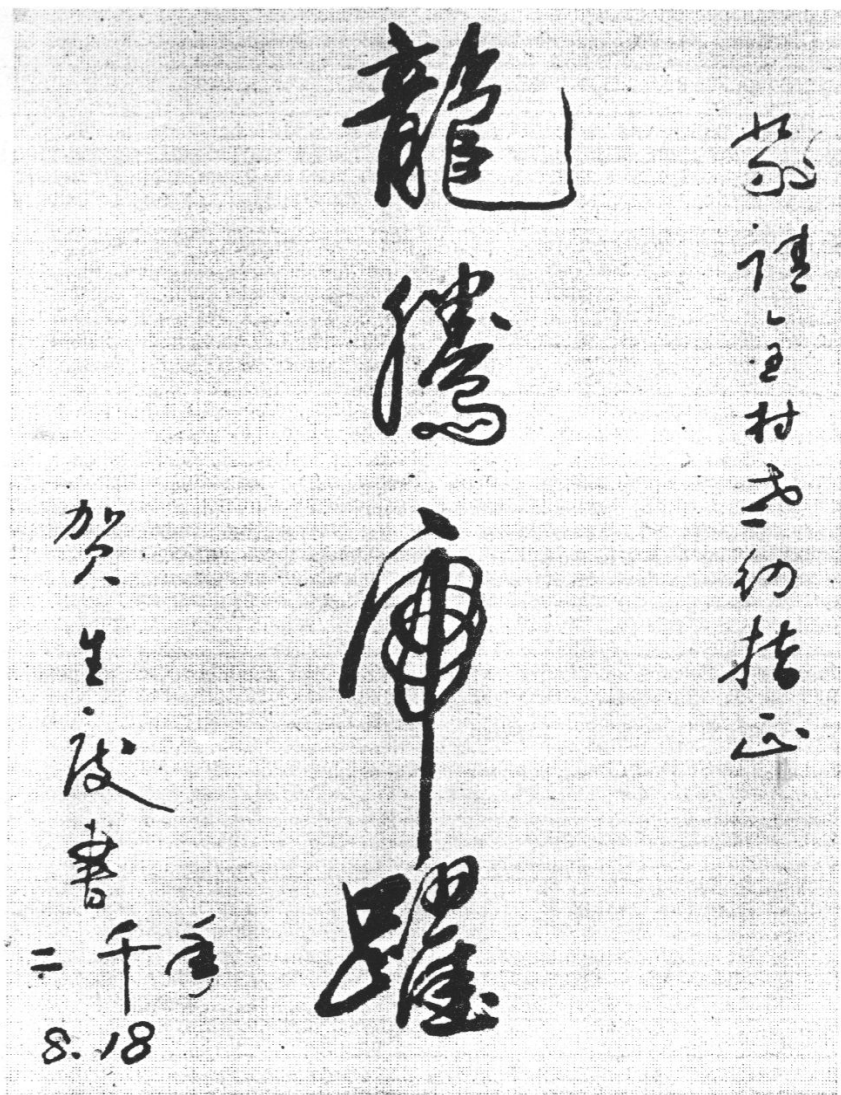 敬请全村老幼指正
龍騰虎躍
贺生書
二千年
8.18